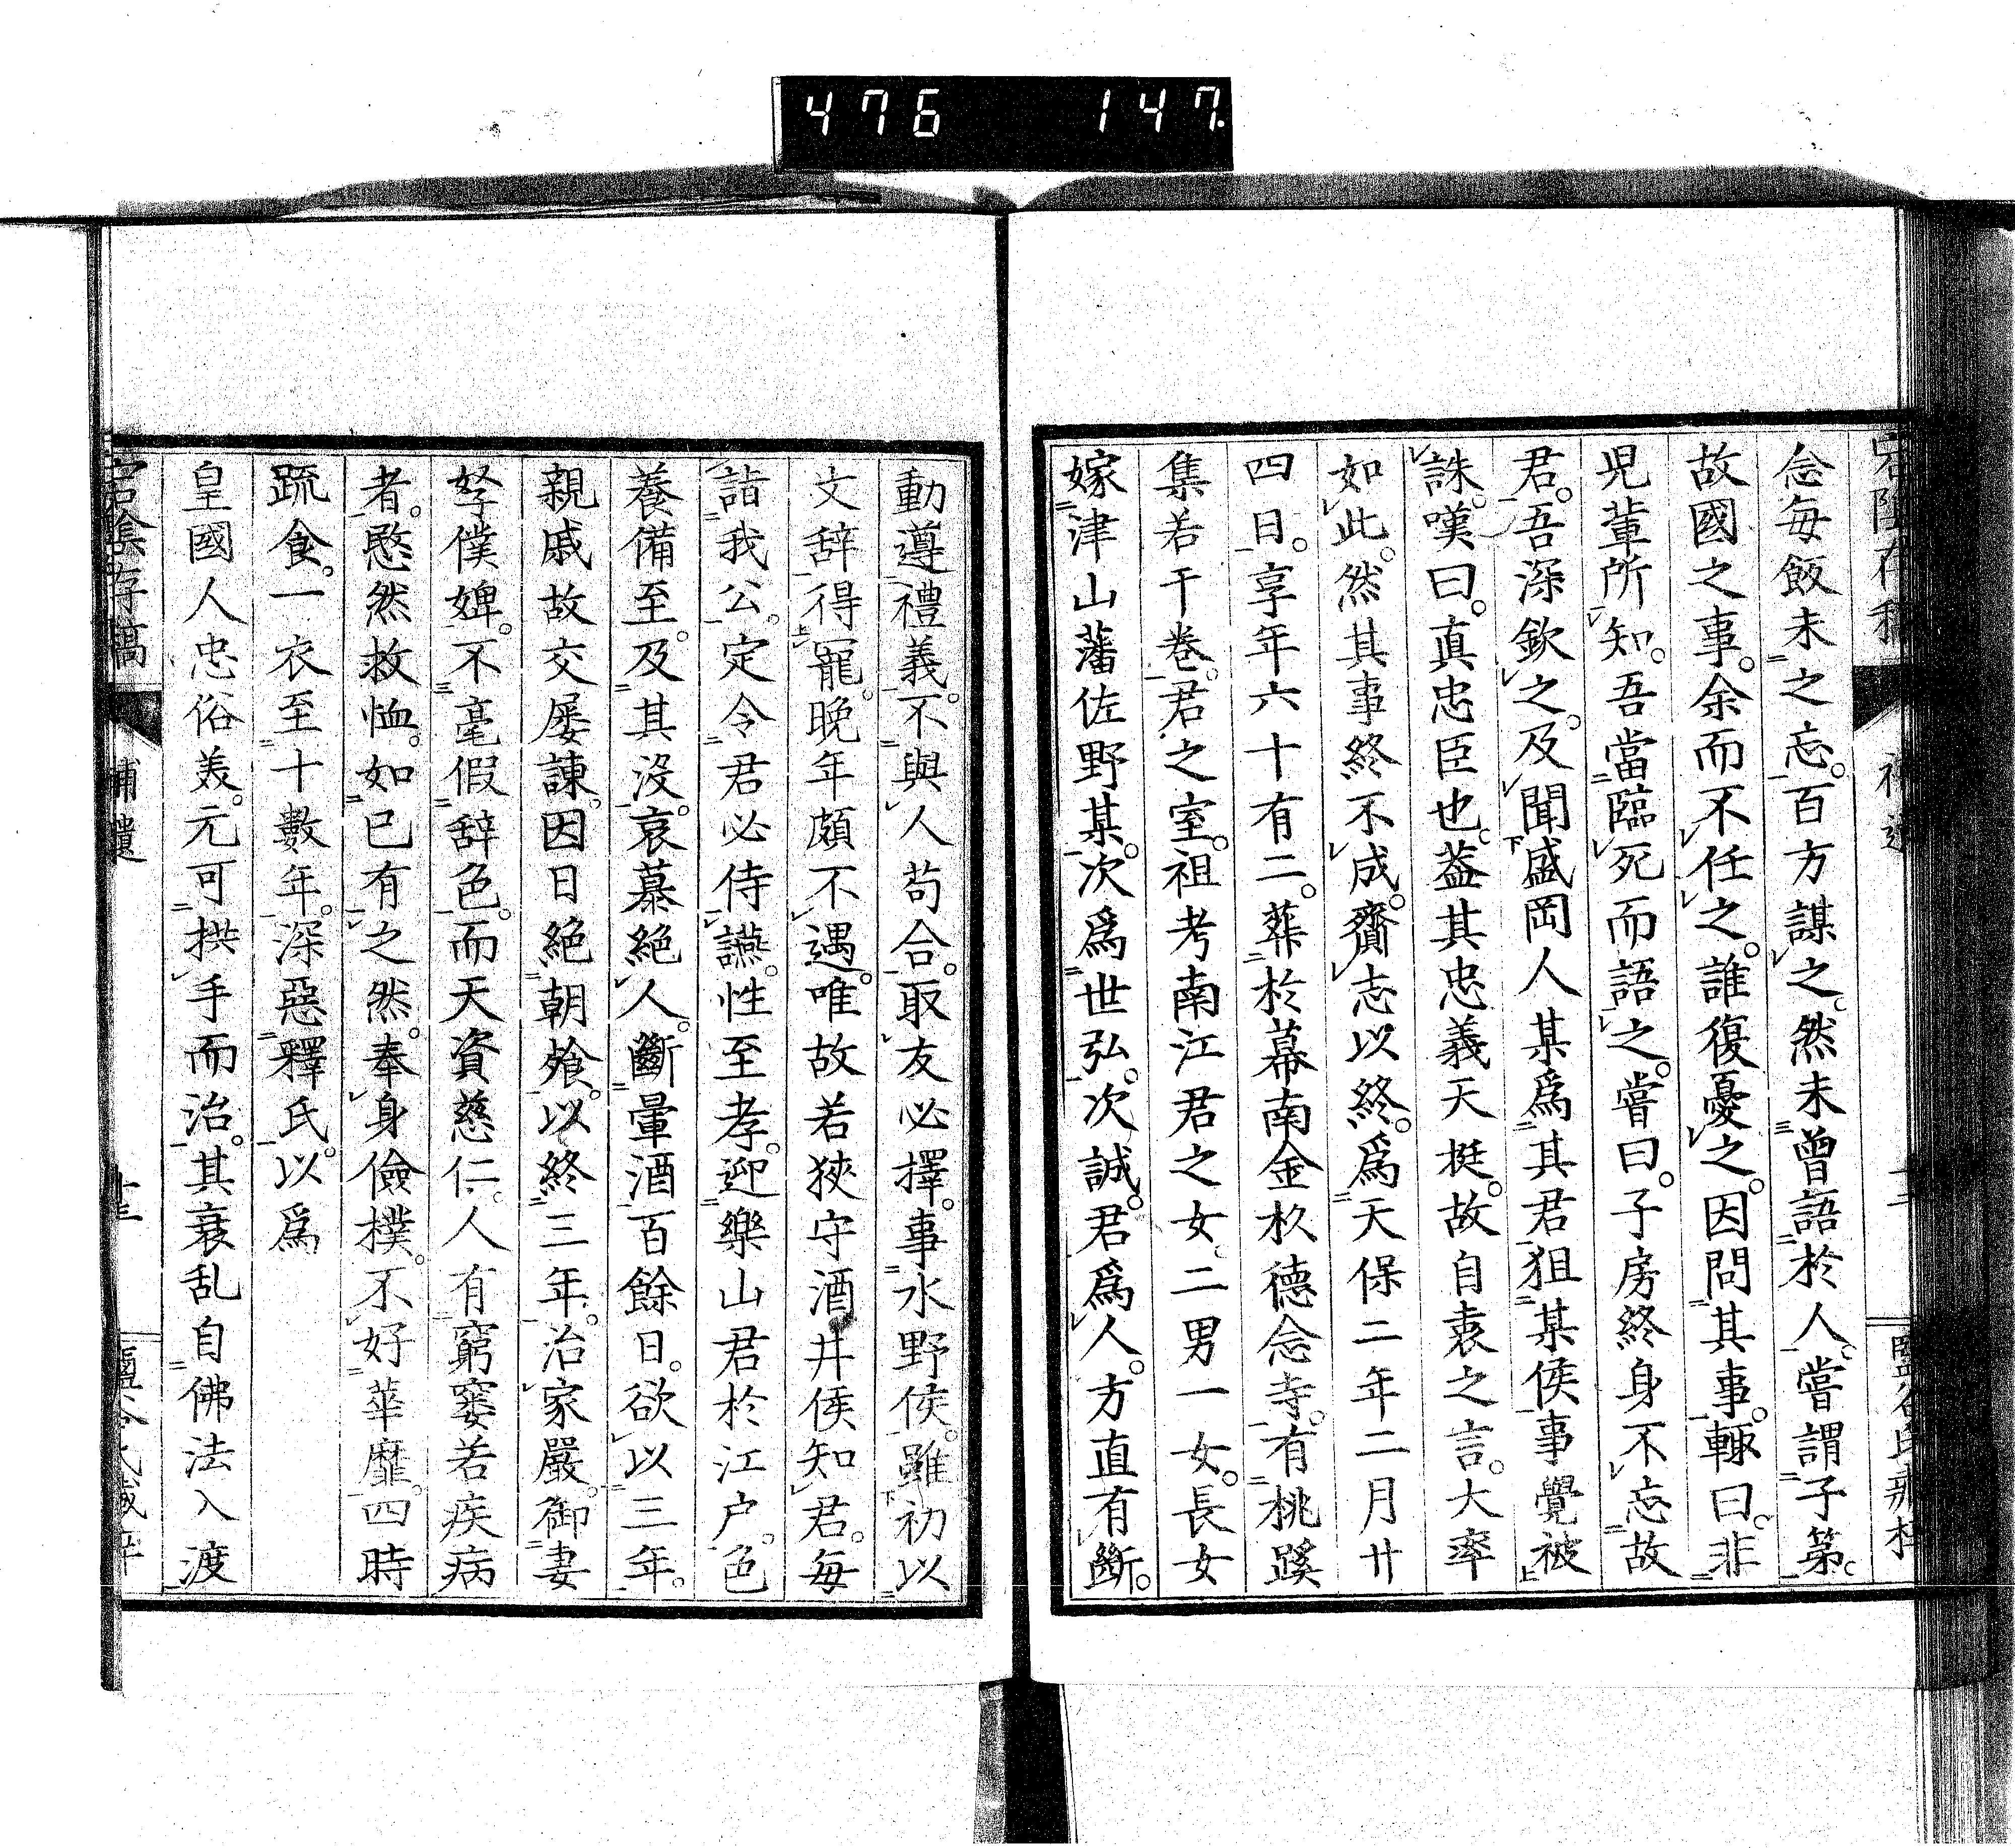 476 147
念每飯未之忘。百方謀之。然未曾語於人。嘗謂子第。
故國之事。余而不任之。誰復憂之。因問其事。輙曰。非
児輩所知。吾當臨死而語之。嘗曰。子房終身不忘故
君。吾深欽之。及聞盛岡人某爲其君狙某侯。事覺被
誅。嘆曰。真忠臣也。葢其忠義天挺。故自衰之言。大率
如此。然其事終不成。齎志以終。爲天保二年二月廿
四日。享年六十有二。葬於幕南金杉德念寺。有桃蹊
集若干巻。君之室。祖考南江君之女。二男一女。長女
嫁津山藩佐野某。次爲世弘。次誠。君爲人。方直有斷。
動遵禮義。不與人苟合。取友必擇。事水野侯。雖初以
文辞得寵。晩年頗不遇。唯故若狹守酒井侯知君。每
詣我公。定令君必侍讌。性至孝。迎樂山君於江戸。色
養備至。及其沒。哀慕絶人。斷葷酒百餘日。欲以三年。
親戚故交屡諌。因日絶朝飱。以終三年。治家嚴。御妻
孥僕婢。不毫假辞色。而天資慈仁。人有窮窶若疾病
者。愍然救恤。如已有之然。奉身儉樸。不好華靡。四時
疏食。一衣至十數年。深惡釋氏。以爲
皇國人忠俗美。元可拱手而治。其衰乱自佛法入渡
宕陰存稿 補遺